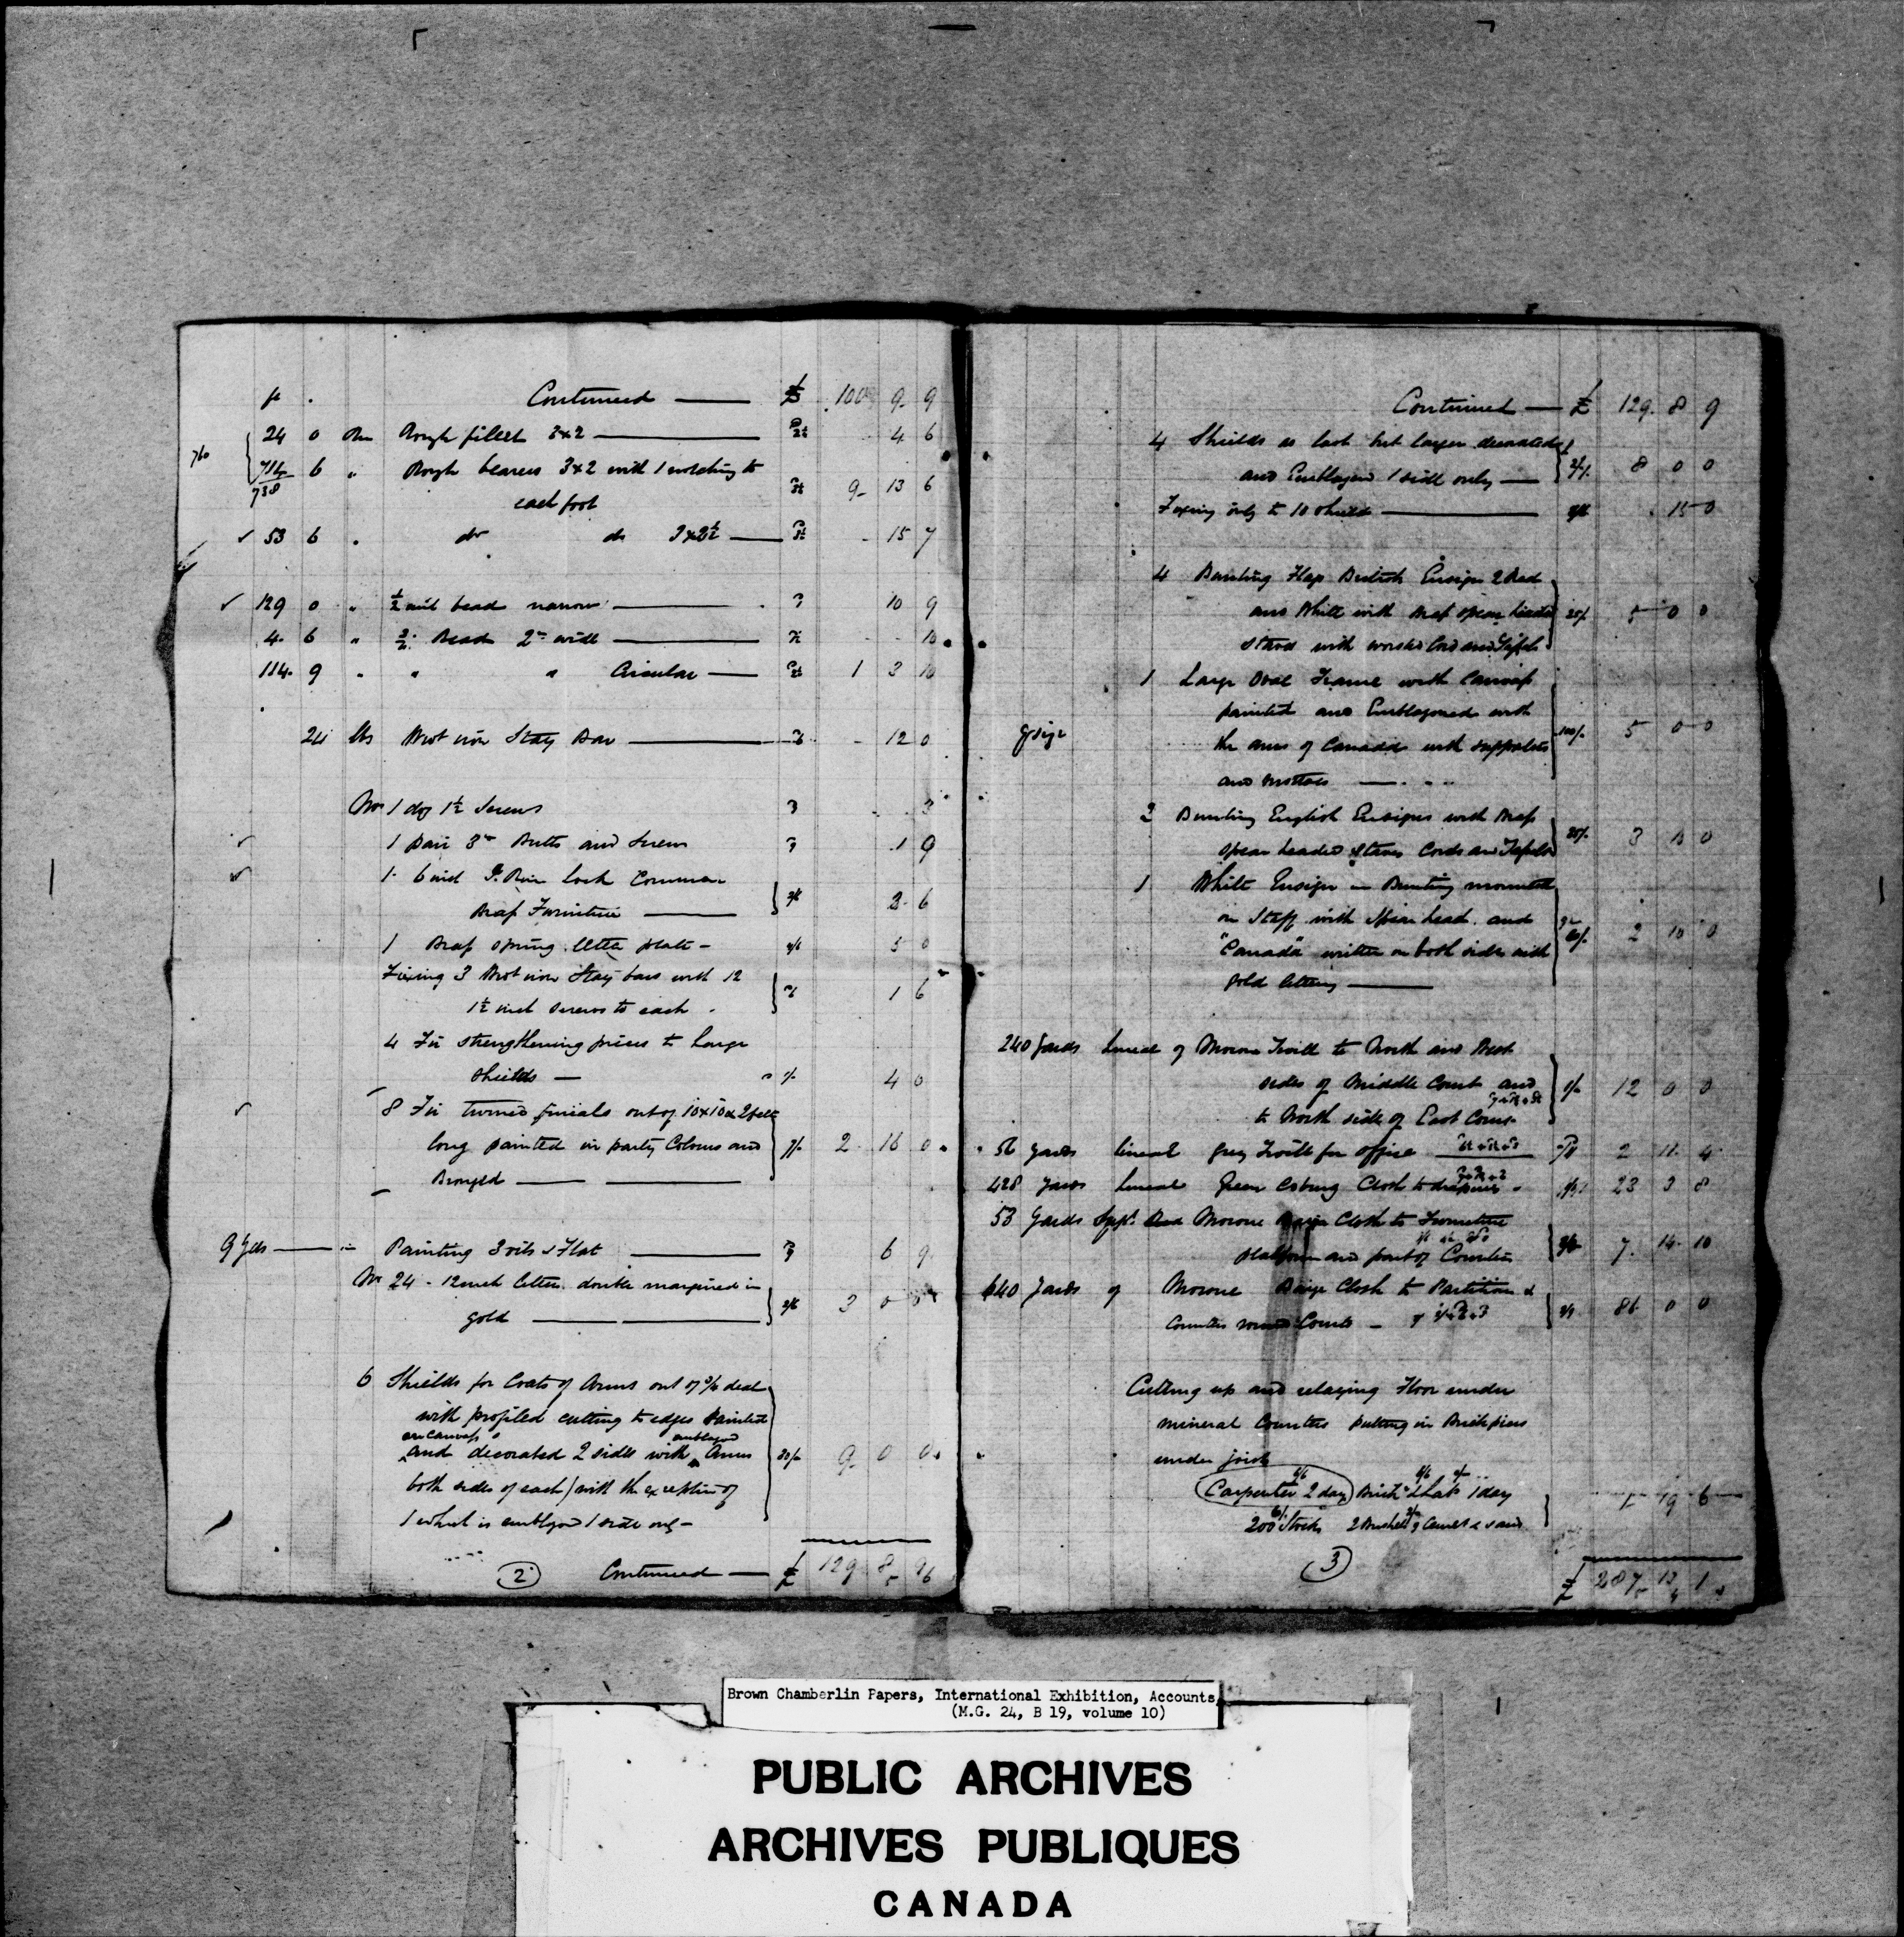 ft . Continued — £ 100 9 9
24 0 Run Rough fillet 3x2 — 4 6
760 714 6 " Rough bearers 3x2 with 1 notching to
738 each foot 9 13 6
53 6 " do do 3x2½ — 15 7
129 0 " ½ inch bead narrow — 10 9
4 6 " Bead 2" wide — 10
114 9 " " " Circular — 1 3 10
24 lbs Wrot iron Stay Bar — 12 0
No 1 doz 1½ Screws 3
1 Pair 3" Butts and Screws 1 9
1 6 inch Rim lock Common
Brass Furniture — 3 6
1 Brass spring letter plate — 5 0
Fixing 3 Wrot iron Stay bars with 12
1½ inch screws to each 1 6
4 Fir strengthening pieces to large
shields — 1/- 4 0
8 Fir turned finials out of 10x10x2 feet
long painted in party Colours and 7/- 2 16 0
Bronzed —
9 Yds — Painting 3 oils & Flat — 6 9
No 24 - 12 inch letters double margined in
gold — 2/6 3 0 0
6 Shields for Coats of Arms out of ¾ deal
with profiled cutting to edges painted
on canvass emblazoned
and decorated 2 sides with Arms 30/- 9 0 0
both sides of each / with the exception of
1 which is emblazd 1 side only —
2 Continued — £ 129 8 9
Continued — £ 129 8 9
4 Shields as last but larger decorated
and Emblazoned 1 side only — 8 0 0
Fixing only to 10 shields — 15 0
4 Bunting Flags British Ensign 2 Red
and White with Brass spear headed 25/- 5 0 0
staves with worsted Cord and Tassels
1 Large Oval Frame with Canvass
painted and Emblazoned with
the arms of Canada with supporters 100/- 5 0 0
and mottoes —
3 Bunting English Ensigns with Brass
spear headed Staves Cords and Tassels 3 0
1 White Ensign in Bunting mounted
on Staff with Spear head and
"Canada" written on both sides with 2 10 0
gold lettering —
240 Yards lineal of Morone Twill to North and West
sides of Middle Court and 1/- 12 0 0
to North side of East Court
56 yards lineal Grey Twill for office 2 11 4
428 yards lineal Green Coburg Cloth to draperies 23 3 8
53 Yards Supl Morone Baize Cloth to Furniture
platform and front of Counter 7 14 10
640 Yards of Morone Baize Cloth to Partition &
Counters round Courts — 86 0 0
Cutting up and relaying Floor under
mineral Counters putting in Brick piers
under joists
Carpenter 2 days Brickr & Labr 1 day
200 Stocks 2 Bushels of Cement & sand 1 19 6
3
£ 287 13 1
Brown Chamberlin Papers, International Exhibition, Accounts,
(M.G. 24, B 19, volume 10)
PUBLIC ARCHIVES
ARCHIVES PUBLIQUES
CANADA